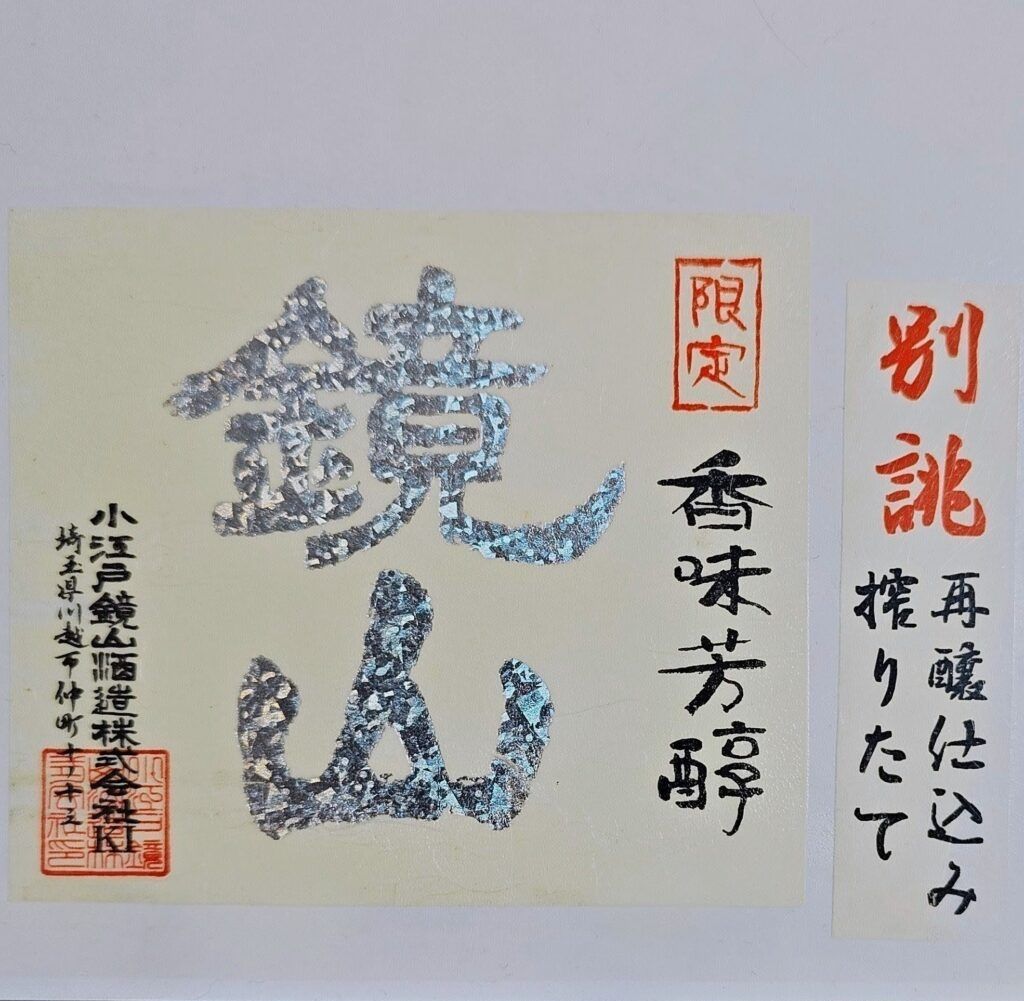 別誂
再醸仕込み
搾りたて
限定
香味芳醇
鏡山
小江戸鏡山酒造株式会社KI
埼玉県川越市仲町十ノ十三